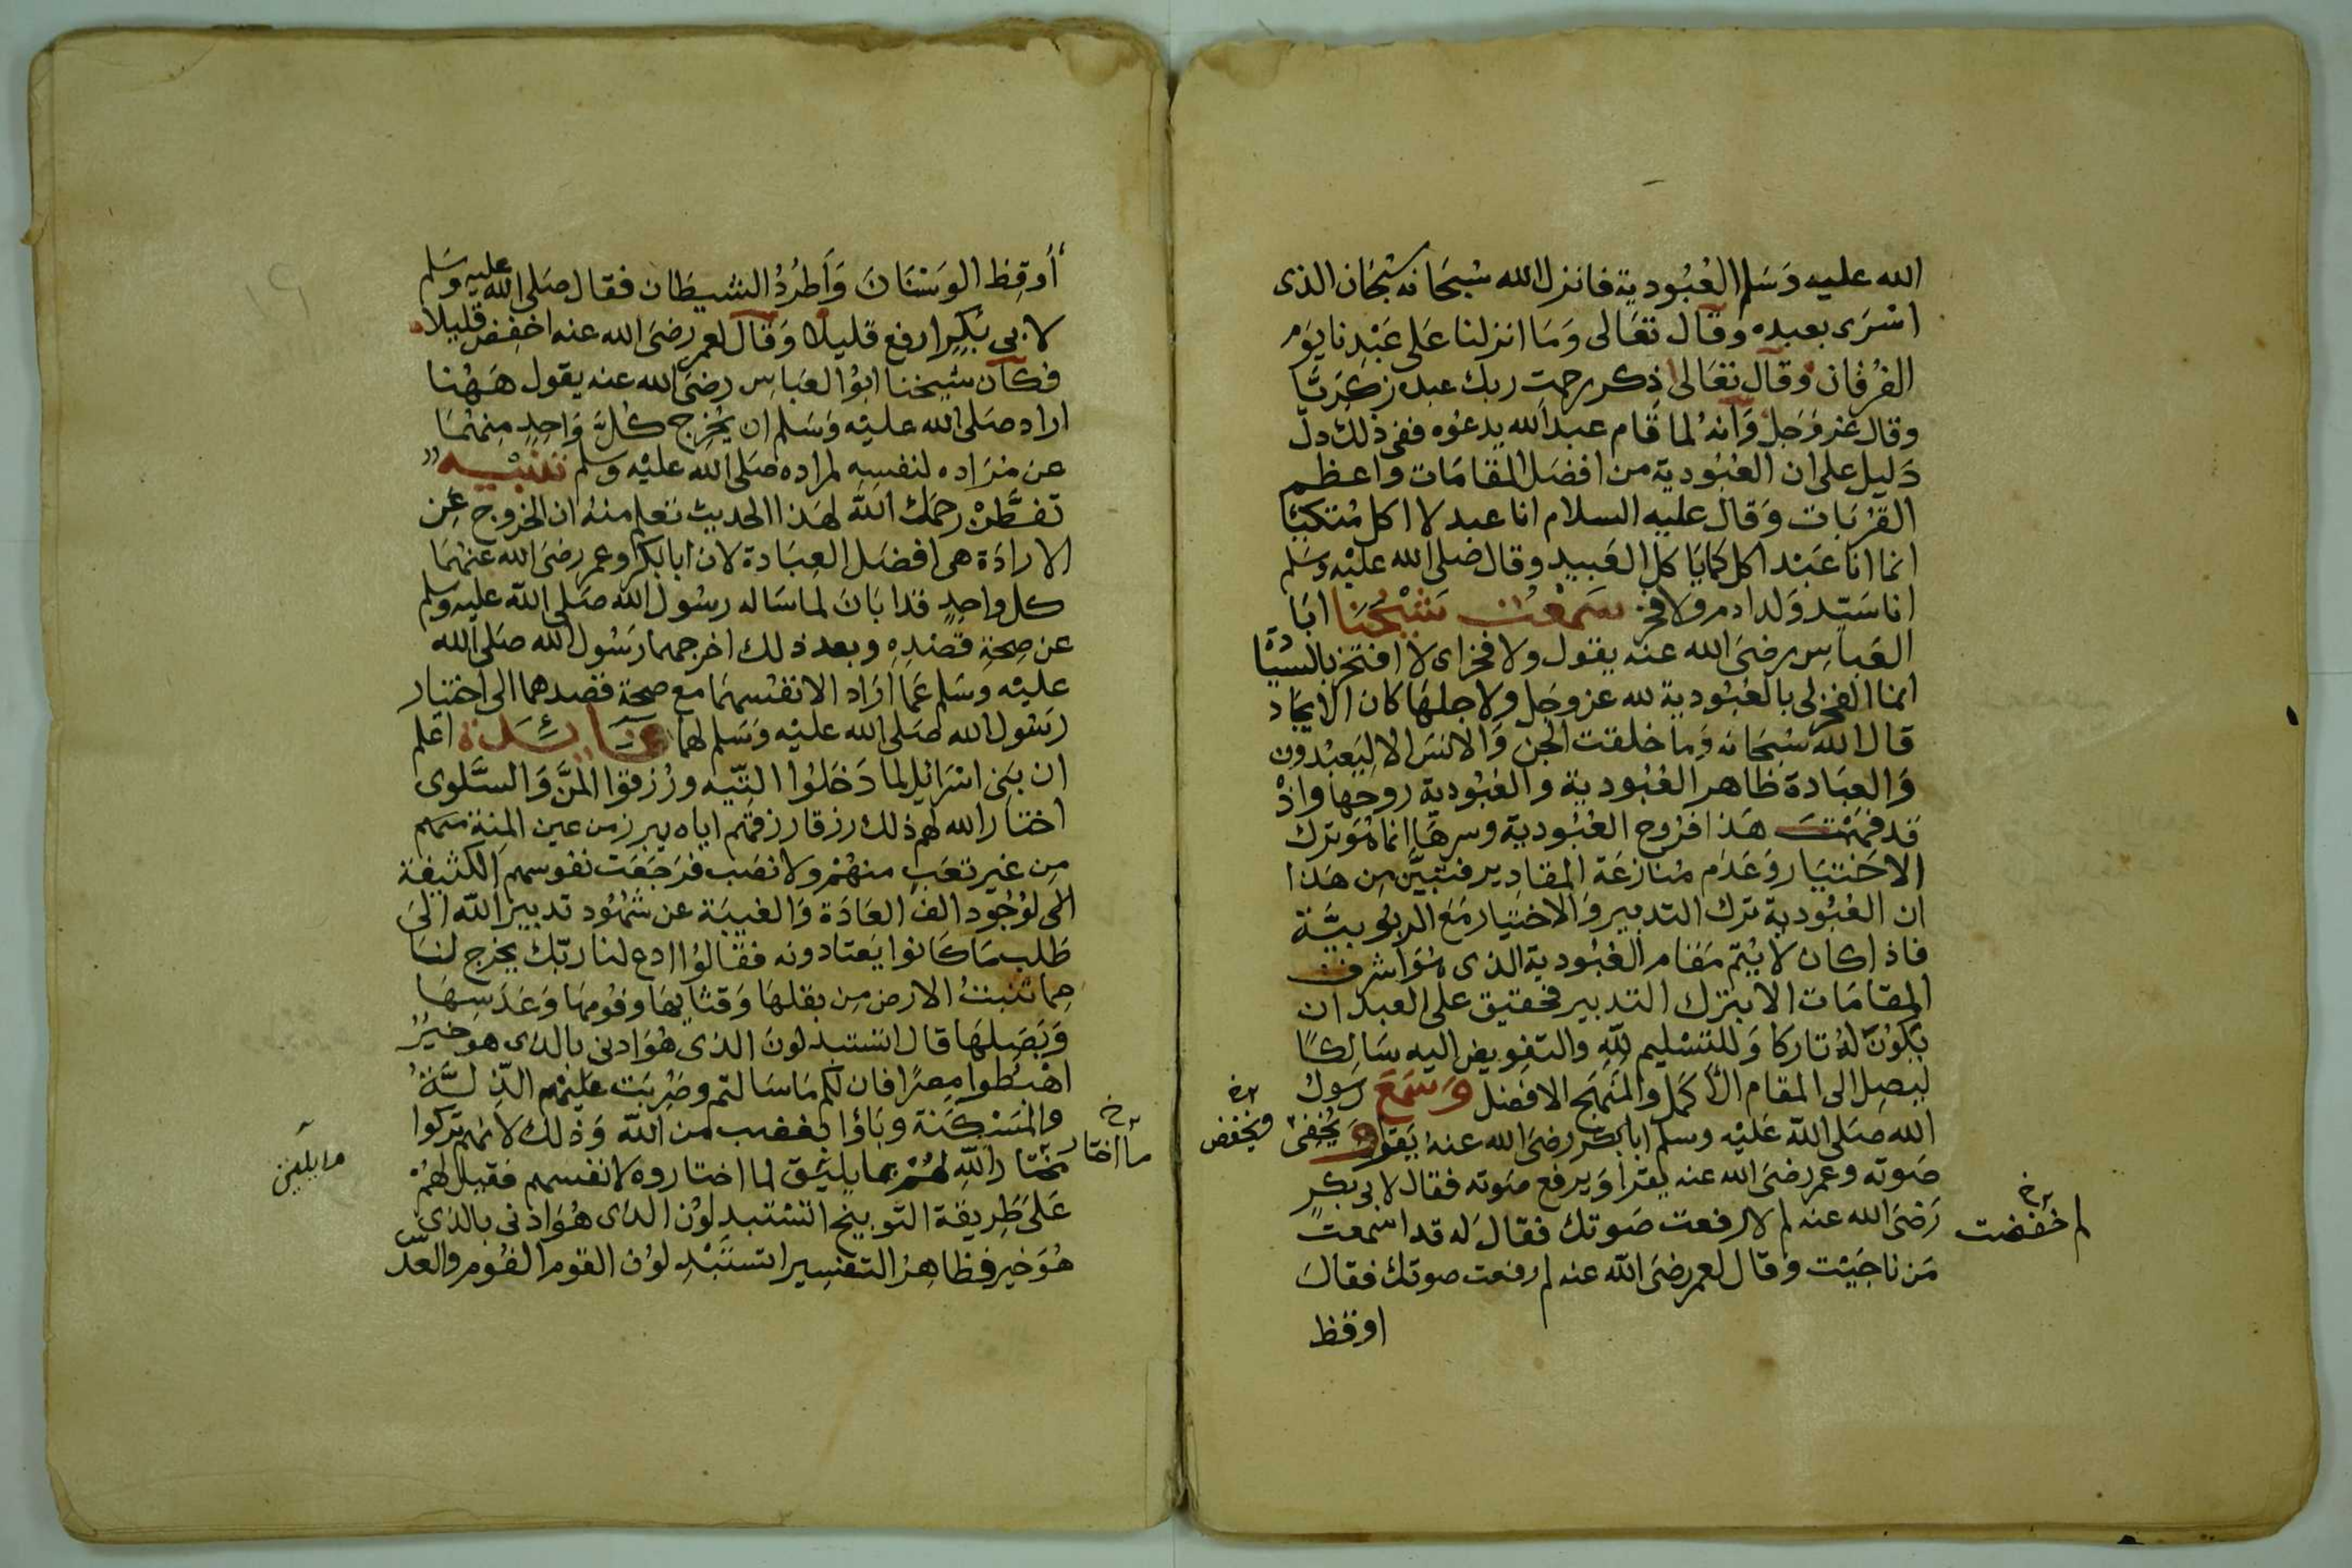 الله عليه وَسَلم العُبُودية فانزل الله سُبحَانه سُبحَان الذى
اسْرَى بعبده وقال تعَالى وَمَا انزلنا عَلى عَبْدِنا يَوم
الفرُقان وقال تعَالى ذِكر رحمت ربك عبده زكريَّا
وقال عَزوَجَل وَانهُ لما قام عبد الله يدعُوه ففى ذلك دلّ
دَليل على ان العُبُودية من افضَل المقامَات واعظم
القُربَات وَقال عليه السلام انا عبد لا اكل مُتكئا
انما انا عَبْد اكل كما ياكل العَبيد وقال صَلى الله عليْه وسَلم
انا سَيّد وَلد ادم ولا فخر سَمعْت شيْخَنا ابَا
العَباس رضىَ الله عنه يقول ولا فخر اى لا افتخر بالسيَادة
انما الفخر لى بالعُبُودية لله عز وجَل ولاجلهَا كان الايجَاد
قال الله سُبحَانه وَما خلقت الجن وَالانسَ الا ليَعبْدون
وَالعِبَادة ظاهر العُبُودية والعُبُودية روحهَا واذْ
قد فهمْت هَذا فرُوح العُبُودية وسرهَا انما هُوَ ترك
الاختيَار وَعَدَم مُنازعَة المقادير فتبيَّن مِن هَذا
ان العُبُودية ترك التدبير وَالاختيَار مَعَ الربوبيَّة
فاذا كان لا يَتم مَقام العُبُودية الذى هُوَ اشرف
المقامَات الا بترك التدبير فحقيق على العبد ان
يكوُن لهُ تاركا وَللتسْليم للّهِ والتفويض اليه سَالكًا
ليصل الى المقام الأكمَل والمنهَج الافضل وَسَمَعَ رسَوُل
الله صَلى الله عَليْه وسلم ابا بكر رضىَ الله عنهُ يَقرا وَيُخفى
ويخفض
صَوته وعمر رضىَ الله عنه يقرا وَيرفع صَوته فقال لابى بكرٍ
رَضىَ الله عنه لم لا رفعت صَوتك فقالَ له قد اسْمعت
لم خفضت
مَن ناجَيْت وَقال لعمر رضىَ الله عنه لم رفعت صوتك فقالَ
اوقظ
أوقِظ الوَسْنَانَ وَأطرُدُ الشيطان فقال صَلى الله عليه وسَلم
لابى بَكِر ارفع قليلا وَقال لعمر رضىَ الله عنه اخفِض قليلا
فكان شيخنا ابوُ العَباس رضىَ الله عنه يقول هَهُنا
اراد صَلى الله عليْه وَسَلم ان يخُرج كُلَّ وَاحِدٍ مِنهُمَا
عن مُرَاده لنفسِهِ لمراده صَلى الله عليْه وسلم تنبيْه
تفطَّنْ رحمَك الله لهَذا الحديث تعلم منهُ ان الخروج عَن
الارادَة هى افضَل العِبَادة لان ابا بكر وعمر رضىَ الله عنهُمَا
كل واحِدٍ قد ابَانَ لما سَاله رسُول الله صَلى الله عليْه وسَلم
عن صِحَةِ قصْدِهِ وبعد ذلك اخرجهما رَسُول الله صَلى الله
عليْه وَسَلم عَما ارَاد الانفسهمَا مع صحة قصدهما الى اختيَار
رسَول الله صَلى الله عليْه وَسَلم لهما فائدة اعلم
ان بَنى اسْرائيل لما دَخَلوُا التيه وَرُزقوُا المَنَّ وَالسَّلوى
اختار الله لهم ذلك رزقا رزقهم اياه يبرز من عين المِنة
مِن غير تعَب منهُمْ ولا نصَب فرَجَعَت نفوسهم الكثيفة
لوُجُود الف العَادَة وَالغيبَة عن شُهُود تدبير الله الى
طلب مَا كانوا يَعتادونه فقالوُا ادع لنا ربّك يخرج لنَا
مما تنبتُ الارض مِن بقلهَا وَقثائهَا وفُومهَا وَعَدَسِهَا
وَبَصَلهَا قال اتستبدلونَ الذى هُوَ ادنى بالذى هو خيْرٌ
اهْبُطوا مِصرًا فان لكم مَا سَالتم وضربَت عَليْهم الذلَّةُ
والمسْكنة وبَاؤا بغضب من الله وَذلك لانهم تركوا
مَا اختار
مختار الله لهُمْ مما يليْق لما اختاروه لانفسهم فقيل لهُمْ
عَلى طريقة التوبيخ اتستبدِلوُن الذى هُوَ ادنى بالذى
هُوَ خير فظاهر التفسير اتستَبْدِلوُن القوم الفوُم والعدّس